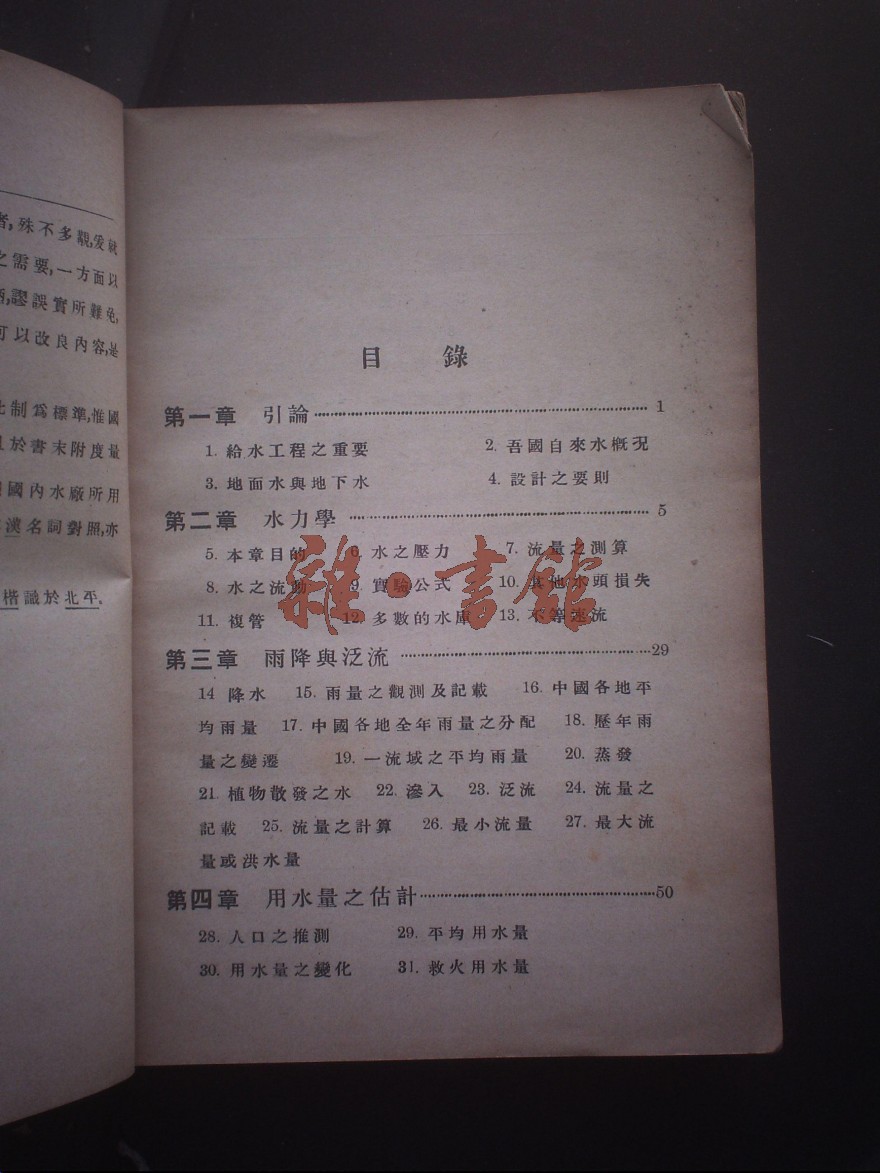 者,殊不多觀,爰就
之需要,一方面以
謬誤實所難免,
可以改良內容,是
制爲標準,惟國
於書末附度量
國內水廠所用
漢名詞對照,亦
楷識於北平.
目錄
第一章 引論 1
1. 給水工程之重要 2. 吾國自來水概況
3. 地面水與地下水 4. 設計之要則
第二章 水力學 5
5. 本章目的 6. 水之壓力 7. 流量之測算
8. 水之流動 9. 實驗公式 10. 其他水頭損失
11. 複管 12. 多數的水庫 13. 不等速流
第三章 雨降與泛流 29
14 降水 15. 雨量之觀測及記載 16. 中國各地平
均雨量 17. 中國各地全年雨量之分配 18. 歷年雨
量之變遷 19. 一流域之平均雨量 20. 蒸發
21. 植物散發之水 22. 滲入 23. 泛流 24. 流量之
記載 25. 流量之計算 26. 最小流量 27. 最大流
量或洪水量
第四章 用水量之估計 50
28. 人口之推測 29. 平均用水量
30. 用水量之變化 31. 救火用水量
雜·書館